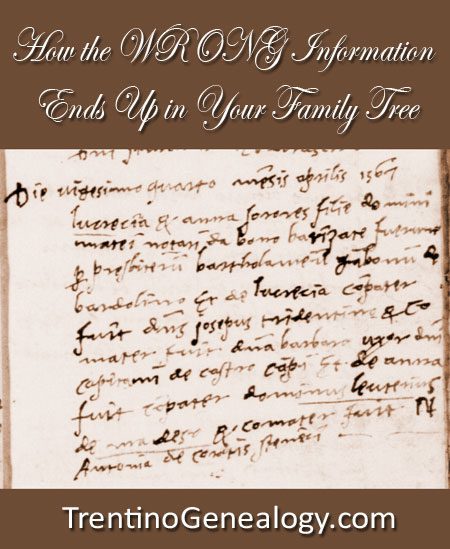 How the WRONG Information
Ends Up in Your Family Tree
Die vigesimo quarto mensis aprilis 1567
lucrecia & anna sorores filie domini
notarii da bono barizate fuerunt
presbiterū bartholameū
bardolino Et de lucrecia cōpater
fuit dn̄s Josepus tridentinus & co
mater fuit dn̄a barbara uxor dn̄i
capitanii de castro Et de anna
fuit cōpater dominus leuterius
de ma dese & comater fuit
Antonia de
TrentinoGenealogy.com